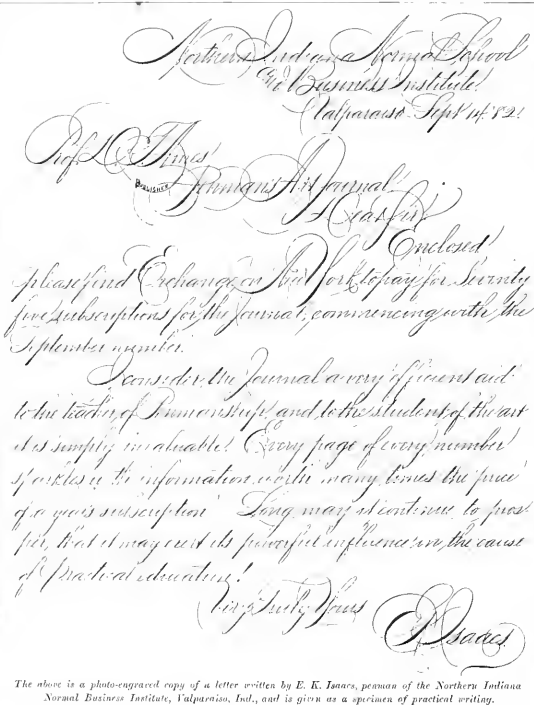 Northern Indiana Normal School
and Business Institute.
Valparaiso Sept 14 '82.
Prof. D. T. Ames
Publisher
Penman's Art Journal.
Dear Sir
Enclosed
please find Exchange on New York to pay for Seventy
five subscriptions for the Journal, commencing with the
September number.
I consider the Journal a very efficient aid
to the teacher of Penmanship, and to the student of the art
it is simply invaluable. Every page of every number
sparkles with information worth many times the price
of a years subscription. Long may it continue to pros-
per, that it may exert its powerful influence in the cause
of Practical education!
Very Truly Yours
E K Isaacs.
The above is a photo-engraved copy of a letter written by E. K. Isaacs, penman of the Northern Indiana
Normal Business Institute, Valparaiso, Ind., and is given as a specimen of practical writing.